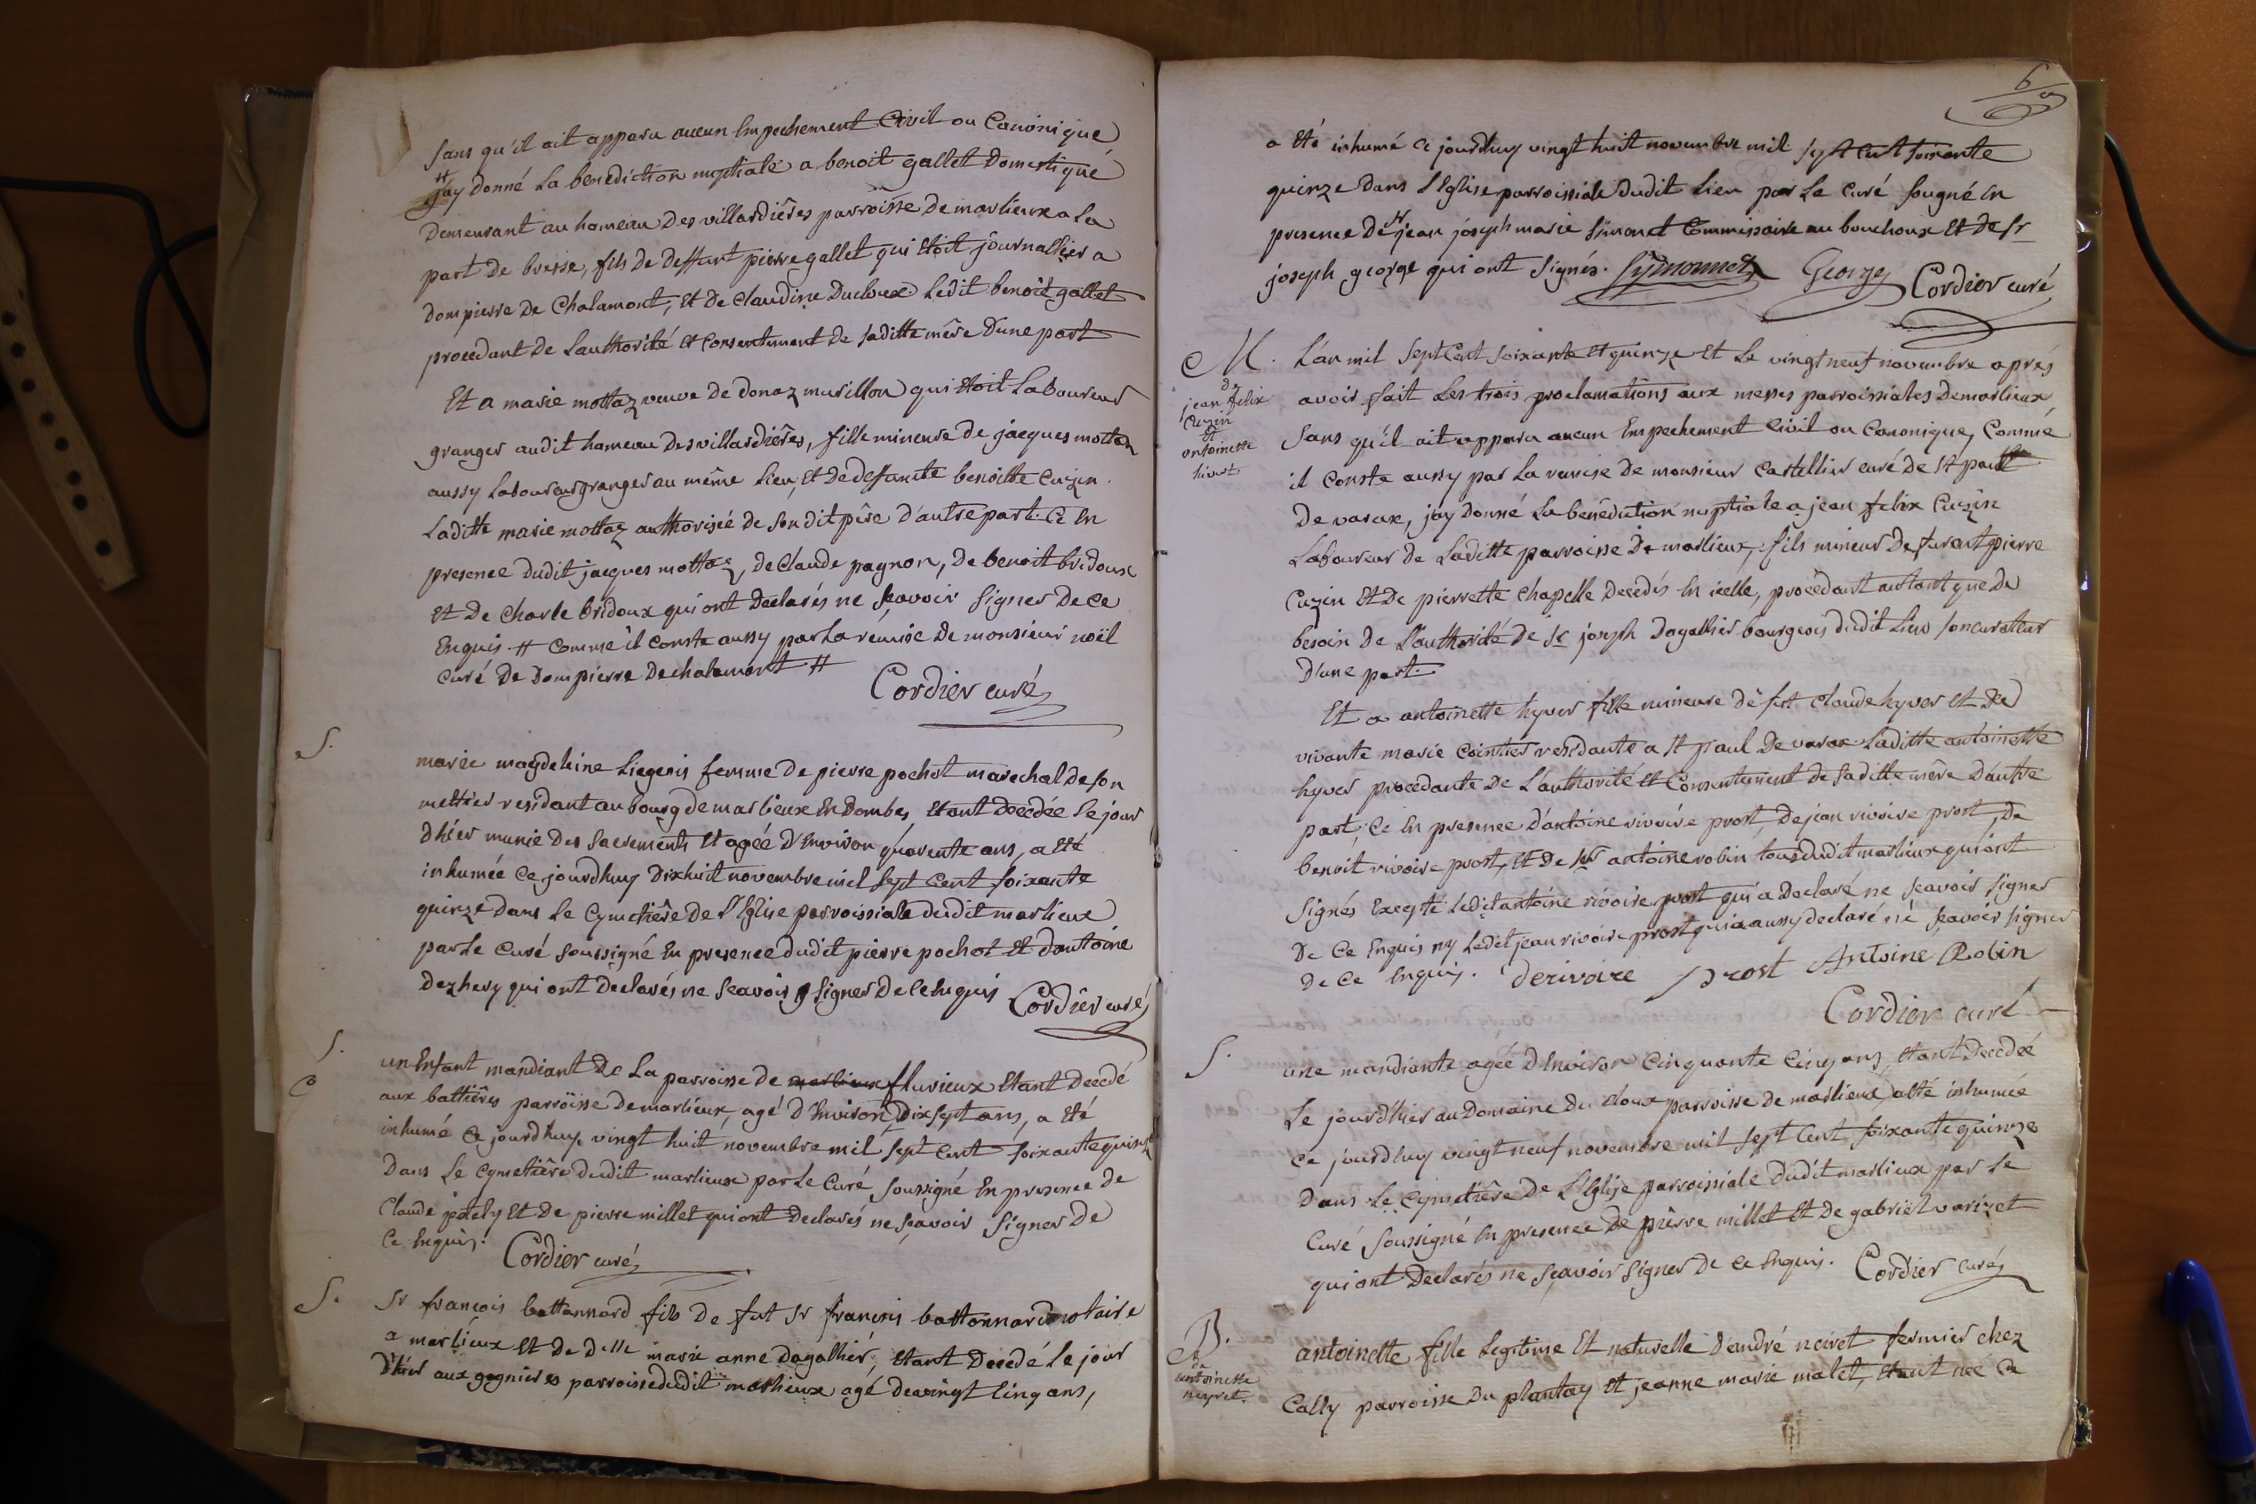 sans qu'il ait apparu aucun Empechement Civil ou Canonique
# jay donné la benediction nuptiale a benoit gallet Domestique
Demeurant au hameau Des villardières parroisse de marlieux a la
part de bresse, fils de deffunt pierre gallet qui Etoit journallier a
dompierre de Chalamont, Et de Claudine Ducloux. Ledit benoit gallet
procedant de Lauthorité et Consentement de saditte mère d'une part
Et a marie mottaz veuve de donaz murillon qui Etoit Laboureur
granger audit hameau Des villardières, fille mineure de jacques mottaz
aussy Laboureur granger au même Lieu, Et de deffunte benoitte Cuzin.
Laditte marie mottaz authorisée de son dit père d'autre part. Ce En
presence dudit jacques mottaz, de Claude pagnon, de benoit bridoux
Et De Charle bridoux qui ont Declarés ne sçavoir signer De Ce
Enquis # Comme il Conste aussy par La remise De monsieur noël
Curé De Dompierre De chalamont #
Cordier curé
S.
marie magdelaine Liegeois femme de pierre pochot marechal de son
mettier residant au bourg de marlieux En Dombes, Etant Decedée Le jour
D'hier munie Des sacrements Et agée D'Environ quarente ans, a Eté
inhumée Ce jourdhuy Dixhuit novembre mil sept Cent soixante
quinze dans Le Cymetière De L'Eglise parroissiale dudit marlieux
par Le Curé soussigné En presence dudit pierre pochot Et d'antoine
Dezhery qui ont Declarés ne sçavoir signer De Ce Enquis Cordier curé
S.
un Enfant mandiant De La parroisse de flurieux Etant Decedé
aux battières parroisse De marlieux, agé D'Environ Dix sept ans, a Eté
inhumé Ce jourdhuy vingt huit novembre mil sept Cent soixante quinze
Dans Le Cymetière dudit marlieux par Le Curé soussigné En presence de
Claude Et De pierre millet qui ont Declarés ne sçavoir signer De
Ce Enquis. Cordier curé
S.
Sr françois battonnard fils De fut Sr françois battonnard notaire
a marlieux Et De Delle marie anne Dagallier, Etant Decedé Le jour
D'hier aux parroisse dudit marlieux agé De vingt Cinq ans,
6
a Eté inhumé Ce jourdhuy vingt huit novembre mil sept Cent soixante
quinze Dans L'Eglise parroissiale Dudit Lieu par Le Curé sougné En
presence De Sr jean joseph marie simonet Commissaire au bouchoux Et de Sr
joseph george qui ont signés. Symonnet George Cordier curé
M.
de
jean felix
Cuzin
Et
antoinette
hivert
L'an mil sept Cent soixante Et quinze Et Le vingt neuf novembre après
avoir fait Les trois proclamations aux messes parroissiales De marlieux
sans qu'il ait apparu aucun Empechement Civil ou Canonique, Comme
il Conste aussy par La remise De monsieur Castellier curé de St paul
De varax, jay Donné La benediction nuptiale a jean felix Cuzin
Laboureur de Laditte parroisse De marlieux, fils mineur De furent pierre
Cuzin Et De pierrette Chapelle Decedés En icelle, procedant autant que De
besoin De L'authorité De Sr joseph Dagallier bourgeois dudit Lieu son curateur
D'une part.
Et a antoinette hyver fille mineure De fut Claude hyver Et De
vivante marie Cointier residante a St paul De varax Laditte antoinette
hyver procedante De L'authorité Et Consentement de saditte mère D'autre
part, Ce En presence D'antoine rivoire prost, De jean rivoire prost, De
benoit rivoire prost, Et De Sr antoine robin tous dudit marlieux qui ont
signés Excepté Ledit antoine rivoire prost qui a Declaré ne sçavoir signer
De Ce Enquis ny Ledit jean rivoire prost qui a aussy declaré ne sçavoir signer
De Ce Enquis. derivoire prost Antoine Robin
Cordier curé
S.
une mandiante agée D'Environ Cinquante Cinq ans, Etant Decedée
Le jourdhier au Domaine Du cloux parroisse de marlieux, a Eté inhumée
Ce jourdhuy vingt neuf novembre mil sept Cent soixante quinze
Dans Le Cymetière De L'Eglise parroissiale Dudit marlieux par Le
Curé soussigné En presence De pierre millet Et De gabriel varizet
qui ont Declarés ne sçavoir signer De Ce Enquis. Cordier curé
B.
antoinette
neyret.
antoinette fille Legitime Et naturelle D'andré neiret fermier chez
Cally parroisse Du plantay Et jeanne marie malet, Etant née Ce